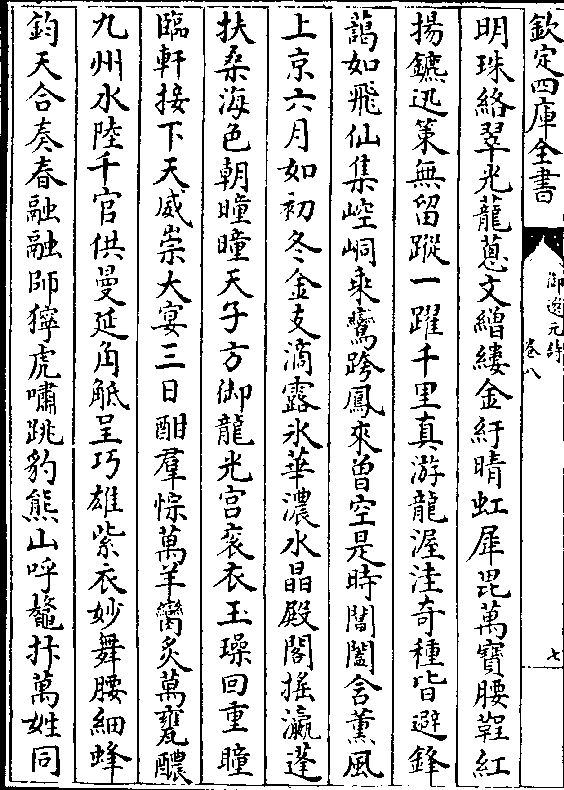 欽定四庫全書
御選元詩
卷八
七
明珠絡翠光蘢蔥文繒縷金紆晴虹犀毘萬寶腰鞓紅
揚鑣迅策無留蹤一躍千里真游龍渥洼奇種皆避鋒
藹如飛仙集崆峒乘鸞跨鳳來曽空是時閶闔含薰風
上京六月如初冬金支滴露冰華濃水晶殿閣揺瀛蓬
扶桑海色朝曈曈天子方御龍光宮衮衣玉璪回重瞳
臨軒接下天威崇大宴三日酣羣悰萬羊臠炙萬甕醲
九州水陸千官供曼延角觝呈巧雄紫衣妙舞腰細蜂
鈞天合奏春融融師獰虎嘯跳豹熊山呼鼇抃萬姓同